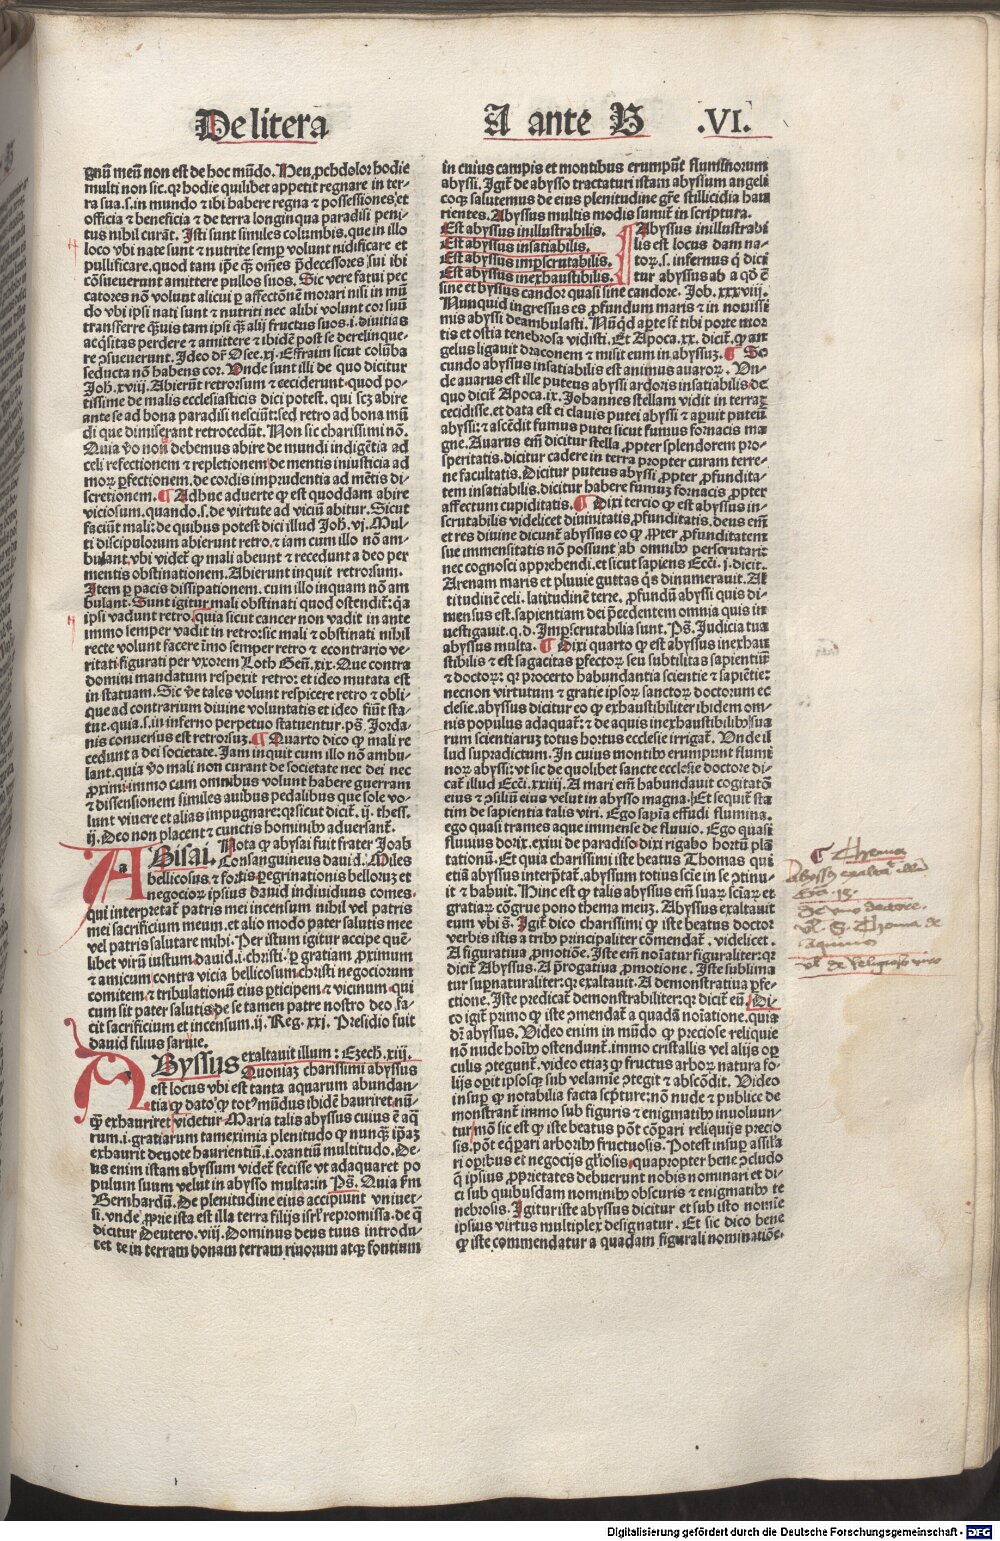 De litera
A ante B .VI.
gnū meū non est de hoc mūdo. Heu ꝓchdolor hodie
multi non sic. qr hodie quilibet appetit regnare in ter-
ra sua .s. in mundo ⁊ ibi habere regna ⁊ possessiones et
officia ⁊ beneficia ⁊ de terra longinqua paradisi peni
tus nihil curāt. Isti sunt similes columbis. que in illo
loco vbi nate sunt ⁊ nutrite semp volunt nidificare et
pullificare. quod tam ipē qꝫ om̄es pdecessores sui ibi
cōsueuerunt amittere pullos suos. Sic vere fatui pec
catores nō volunt alicui ꝑ affectōnē morari nisi in mū
do vbi ipsi nati sunt ⁊ nutriti nec alibi volunt cor suū
transferre qꝫuis tam ipsi qꝫ alij fructus suos .i. diuitias
acqsitas perdere ⁊ amittere ⁊ ibidē post se derelinque-
re ꝯsueuerunt. Ideo dr̄ Osee .xj. Effraim sicut colūba
seducta nō habens cor. Unde sunt illi de quo dicitur
Joh. xviij. Abierūt retrorsum ⁊ ceciderunt. quod po-
tissime de malis ecclesiasticis dici potest. qui scꝫ abire
ante se ad bona paradisi nesciūt: sed retro ad bona mū
di que dimiserant retrocedūt. Non sic charissimi nō.
Quia vo non debemus abire de mundi indigētia ad
celi refectionem ⁊ repletionem de mentis iniusticia ad
mor ꝑfectionem. de cordis imprudentia ad mētis di-
scretionem. ¶ Adhuc aduerte ꝙ est quoddam abire
viciosum. quando .s. de virtute ad viciū abitur. Sicut
faciūt mali: de quibus potest dici illud Joh. vj. Mul-
ti discipulorum abierunt retro. ⁊ iam cum illo nō am-
bulant. vbi videt ꝙ mali abeunt ⁊ recedunt a deo per
mentis obstinationem. Abierunt inquit retrorsum.
Item ꝑ pacis dissipationem. cum illo inquam nō am
bulant. Sunt igitur mali obstinati quod ostendit: qa
ipsi vadunt retro. quia sicut cancer non vadit in ante
immo semper vadit in retro: sic mali ⁊ obstinati nihil
recte volunt facere īmo semper retro ⁊ econtrario ve-
ritati figurati per vxorem Loth Gen. xix. Que contra
domini mandatum respexit retro: et ideo mutata est
in statuam. Sic ve tales volunt respicere retro ⁊ obli-
que ad contrarium diuine voluntatis et ideo fiūt sta-
tue. quia .s. in inferno perpetuo statuentur. ps. Jorda-
nis conuersus est retrorsuꝫ. ¶ Quarto dico ꝙ mali re
cedunt a dei societate. Jam inquit cum illo nō ambu-
lant. quia vo mali non curant de societate nec dei nec
ꝓximi: immo cum omnibus volunt habere guerram
⁊ dissensionem similes auibus pedalibus que sole vo-
lunt viuere et alias impugnare: qr sicut dicit .ij. thess.
ij. Deo non placent ⁊ cunctis hominibꝰ aduersant.
ABisai. Nota ꝙ abysai fuit frater Joab
Consanguineus dauid. Miles
bellicosus. ⁊ fortis ꝑegrinationis belloruꝫ et
negocior ipsius dauid indiuiduus comes.
qui interpretat patris mei incensum nihil vel patris
mei sacrificium meum. et alio modo pater salutis mee
vel patris salutare mihi. Per istum igitur accipe quē-
libet virū iustum. dauid .i. christi. ꝑ gratiam ꝓximum
⁊ amicum contra vicia bellicosum. christi negociorum
comitem ⁊ tribulationū eius ꝑticipem ⁊ vicinum. qui
cum sit pater salutis de se tamen patre nostro deo fa-
cit sacrificium et incensum .ij. Reg. xxj. Presidio fuit
dauid filius saruie.
ABYssus exaltauit illum: Ezech. xiij.
Quoniaꝫ charissimi abyssus
est locus vbi est tanta aquarum abundan-
tia ꝙ dato ꝙ totꝰ mūdus ibidē hauriret. nū-
qꝫ exhauriret videtur. Maria talis abyssus cuius ē aq
rum .i. gratiarum tameximia plenitudo ꝙ nunqꝫ ipaꝫ
exhaurit deuote haurientiū .i. orantium multitudo. De-
us enim istam abyssum videt fecisse vt adaquaret po
pulum suum velut in abysso multa: in Ps. Quia fm
Bernhardū. De plenitudine eius accipiunt vniuer-
si. vnde ꝓprie ista est illa terra filijs isrl repromissa. de q̄
dicitur Deutero. viij. Dominus deus tuus introdu-
cet te in terram bonam terram riuorum atqꝫ fontium
in cuius campis et montibus erumpūt fluuiorum
abyssi. Igit de abysso tractaturi istam abyssum angeli
coqꝫ salutemus de eius plenitudine gre stillicidia hau
rientes. Abyssus multis modis sumit in scriptura.
Est abyssus inillustrabilis.
Est abyssus insatiabilis.
Est abyssus impscrutabilis.
Est abyssus inexhaustibilis.
Abyssus inillustrabi
lis est locus dam na-
tor .s. infernus q̄ dici
tur abyssus ab a qd ē
sine et byssus candor quasi sine candore. Job. xxxviij.
Nunquid ingressus es ꝓfundum maris ⁊ in nouissi
mis abyssi deambulasti. Nūqd apte st tibi porte mor
tis et ostia tenebrosa vidisti. Et Apoca. xx. dicit. ꝙ an
gelus ligauit draconem ⁊ misit eum in abyssuꝫ. ¶ Se
cundo abyssus insatiabilis est animus auaror. Un-
de auarus est ille puteus abyssi ardoris insatiabilis de
quo dicit Apoca. ix. Johannes stellam vidit in terraꝫ
cecidisse. et data est ei clauis putei abyssi ⁊ apuit puteū
abyssi: ⁊ ascēdit fumus putei sicut fumus fornacis ma
gne. Auarus em dicitur stella ꝓpter splendorem pro-
speritatis. dicitur cadere in terra propter curam terre-
ne facultatis. Dicitur puteus abyssi ꝓpter ꝓfundita-
tem insatiabilis. dicitur habere fumuꝫ fornacis ꝓpter
affectum cupiditatis. ¶ Dixi tercio ꝙ est abyssus in-
scrutabilis videlicet diuinitatis ꝓfunditatis. deus em
et res diuine dicunt abyssus eo ꝙ ꝓpter ꝓfunditatem
sue immensitatis nō possunt ab omnibꝰ perscrutari:
nec cognosci apprehendi. et sicut sapiens Ecci. j. dicit.
Arenam maris et pluuie guttas qs dinumerauit. Al
titudinē celi. latitudinē terre. ꝓfundū abyssi quis di-
mensus est. sapientiam dei pcedentem omnia quis in
uestigauit. q.d. Impscrutabilia sunt. Ps. Judicia tua
abyssus multa. ¶ Dixi quarto ꝙ est abyssus inexhau
stibilis ⁊ est sagacitas ꝑfector seu subtilitas sapientiū
⁊ doctor: qr procerto habundantia scientie ⁊ sapiētie:
necnon virtutum ⁊ gratie ipsor sanctor doctorum ec
clesie. abyssus dicitur eo ꝙ exhaustibiliter ibidem om-
nis populus adaquat: ⁊ de aquis inexhaustibilibꝰ sua
rum scientiaruꝫ totus hortus ecclesie irrigat. Unde il
lud supradictum. In cuius montibꝰ erumpunt flumi
nor abyssi: vt sic de quolibet sancte ecclesie doctore di-
cat illud Ecci. xxiiij. A mari em habundauit cogitatō
eius ⁊ ꝯsiliū eius velut in abysso magna. Et sequit sta
tim de sapientia talis viri. Ego sapia effudi flumina.
ego quasi trames aque immense de fluuio. Ego quasi
fluuius dorix. exiui de paradiso dixi rigabo hortū plā
tationū. Et quia charissimi iste beatus Thomas qui
etiā abyssus interpretat. abyssum totius scīe in se ꝯtinu-
it ⁊ habuit. Hinc est ꝙ talis abyssus em suar sciar et
gratiar cōgrue pono thema meuꝫ. Abyssus exaltauit
eum vbi s. Igit dico charissimi ꝙ iste beatus doctor
verbis istis a tribꝰ principaliter cōmendat. videlicet.
A figuratiua ꝓmotiōe. Iste em noiatur figuraliter: qr
dicit Abyssus. A progatiua ꝓmotione. Iste sublima
tur supnaturaliter: qr exaltauit. A demonstratiua ꝑfe-
ctione. Iste predicat demonstrabiliter: qr dicit eū. Di-
co igit primo ꝙ iste ꝯmendat a quadā noiatione. quia
dr abyssus. Video enim in mūdo ꝙ preciose reliquie
nō nude hoibꝰ ostendunt. immo cristallis vel alijs oꝑ
culis ꝯtegunt. video etiaꝫ ꝙ fructus arbor natura fo-
lijs oꝑit ipsosqꝫ sub velamie ꝯtegit ⁊ abscōdit. Video
insup ꝙ notabilia facta scpture: nō nude ⁊ publice de
monstrant immo sub figuris ⁊ enigmatibꝰ inuoluun-
tur mō sic est ꝙ iste beatus pōt cōpari reliquijs precio
sis. pōt eqpari arboribꝰ fructuosis. Potest insup assila
ri opibus et negocijs gliosis. quapropter bene ꝯcludo
ꝙ ipsius ꝓprietates debuerunt nobis nominari et di-
ci sub quibusdam nominibꝰ obscuris ⁊ enigmatibꝰ te
nebrosis. Igitur iste abyssus dicitur et sub isto nomie
ipsius virtus multiplex designatur. Et sic dico bene
ꝙ iste commendatur a quadam figurali nominatiōe.
¶ Thema
Abyssus exaltat illū
de vno doctore.
vl S. Thoma de
aquino
vl de religioso viro
Digitalisierung gefördert durch die Deutsche Forschungsgemeinschaft - DFG